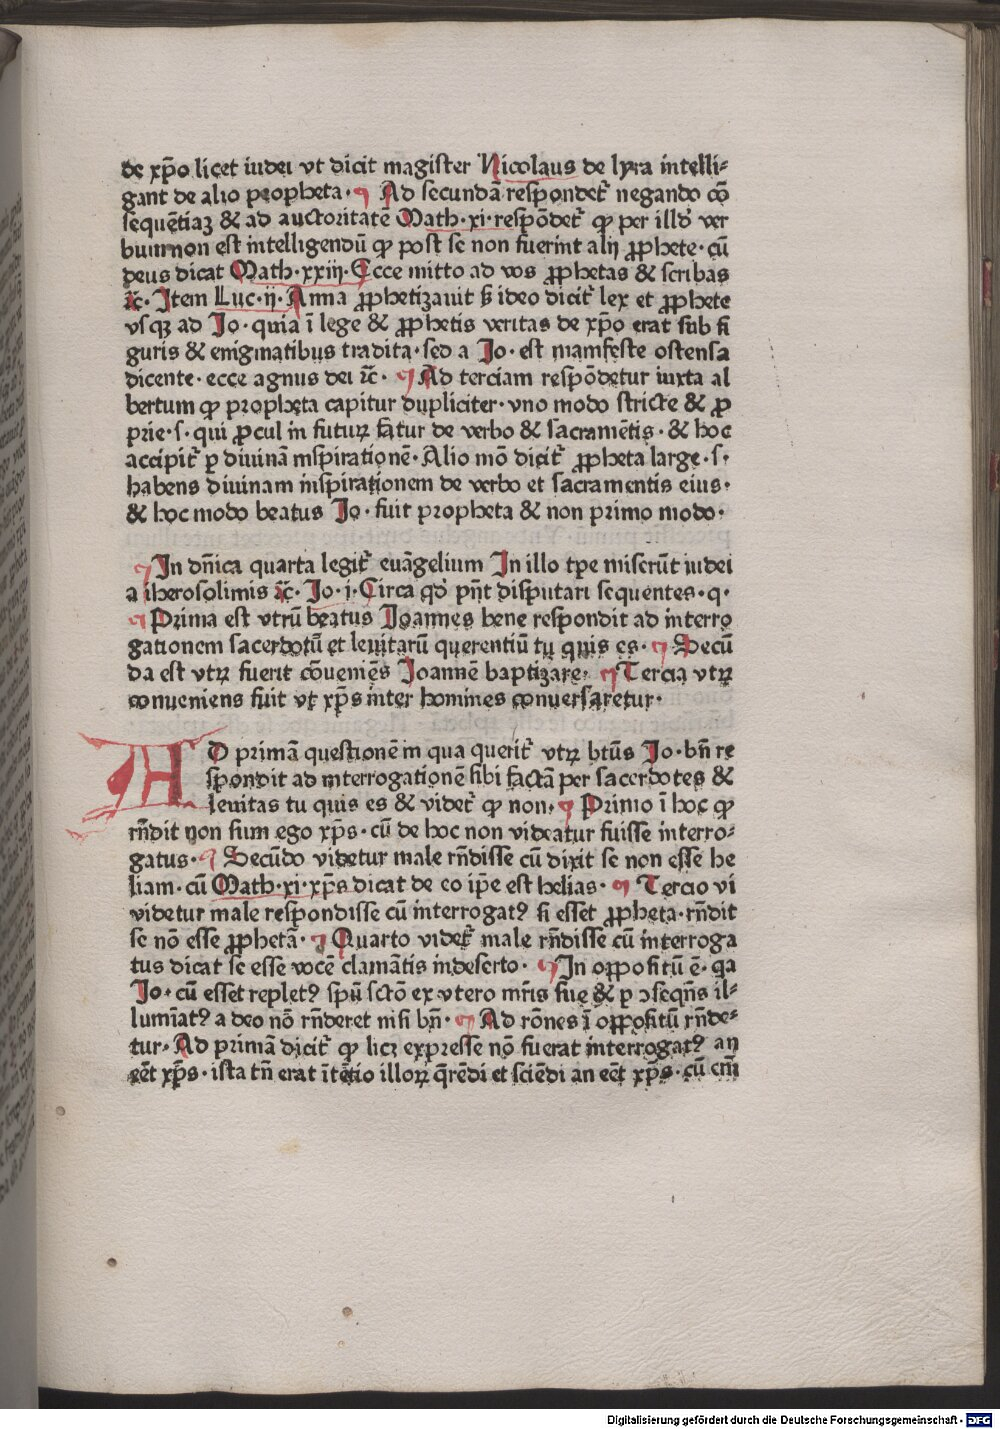 de xp̄o licet iudei vt dicit magister Nicolaus de lyra intelli-
gant de alio propheta. ¶ Ad secundā respondet̄ negando cō
sequētiaꝫ & ad auctoritatē Math. xi. respōdet̄ ꝙ per illd̄ ver
bum non est intelligendū ꝙ post se non fuerint alij ꝓphete. cū
deus dicat Math. xxiij. Ecce mitto ad vos ꝓphetas & scribas
⁊c̄. Item Luc. ij. Anna ꝓphetizauit ß ideo dicit̄ lex et ꝓphete
vsqꝫ ad Jo. quia ī lege & ꝓphetis veritas de xp̄o erat sub fi
guris & enigmatibus tradita. sed a Jo. est manifeste ostensa
dicente. ecce agnus dei ⁊c̄. ¶ Ad terciam respōdetur iuxta al
bertum ꝙ propheta capitur dupliciter. vno modo stricte & ꝓ
prie. s. qui ꝓcul in futuꝝ fatur de verbo & sacramētis. & hoc
accipit̄ ꝑ diuinā inspirationē. Alio mō dicit̄ ꝓpheta large. s.
habens diuinam inspirationem de verbo et sacramentis eius.
& hoc modo beatus Jo. fuit propheta & non primo modo.
¶ In dn̄ica quarta legit̄ euāgelium In illo tp̄e miserūt iudei
a iherosolimis ⁊c̄. Jo. j. Circa qd̄ pn̄t disputari sequentes. q.
¶ Prima est vtrū beatus Joannes bene respondit ad interro
gationem sacerdotū et leuitarū querentiū tu quis es. ¶ Secū
da est vtꝝ fuerit cōueniēs Joannē baptizare. ¶ Tercia vtꝝ
conueniens fuit vt xp̄s inter homines conuersaretur.
AD primā questionē in qua querit̄ vtꝝ btūs Jo. bn̄ re
spondit ad interrogationē sibi factā per sacerdotes &
leuitas tu quis es & videt̄ ꝙ non. ¶ Primo ī hoc ꝙ
rn̄dit non sum ego xp̄s. cū de hoc non videatur fuisse interro-
gatus. ¶ Secūdo videtur male rn̄disse cū dixit se non esse he
liam. cū Math. xi. xp̄s dicat de eo ip̄e est helias. ¶ Tercio vi
videtur male respondisse cū interrogatꝰ si esset ꝓpheta. rn̄dit
se nō esse ꝓphetā. ¶ Quarto videt̄ male rn̄disse cū interroga
tus dicat se esse vocē clamātis indeserto. ¶ In oppositū ē. qa
Jo. cū esset repletꝰ spū sctō ex vtero mr̄is sue & ꝑ ɔseqn̄s il-
lumīatꝰ a deo nō rn̄deret nisi bn̄. ¶ Ad rōnes ī oppositū rn̄de-
tur. Ad primā dicit̄ ꝙ licꝫ expresse nō fuerat interrogatꝰ an
eēt xp̄s. ista tn̄ erat ītētio illoꝝ q̄rēdi et sciēdi an eēt xp̄s. cū em̄
Digitalisierung gefördert durch die Deutsche Forschungsgemeinschaft - DFG